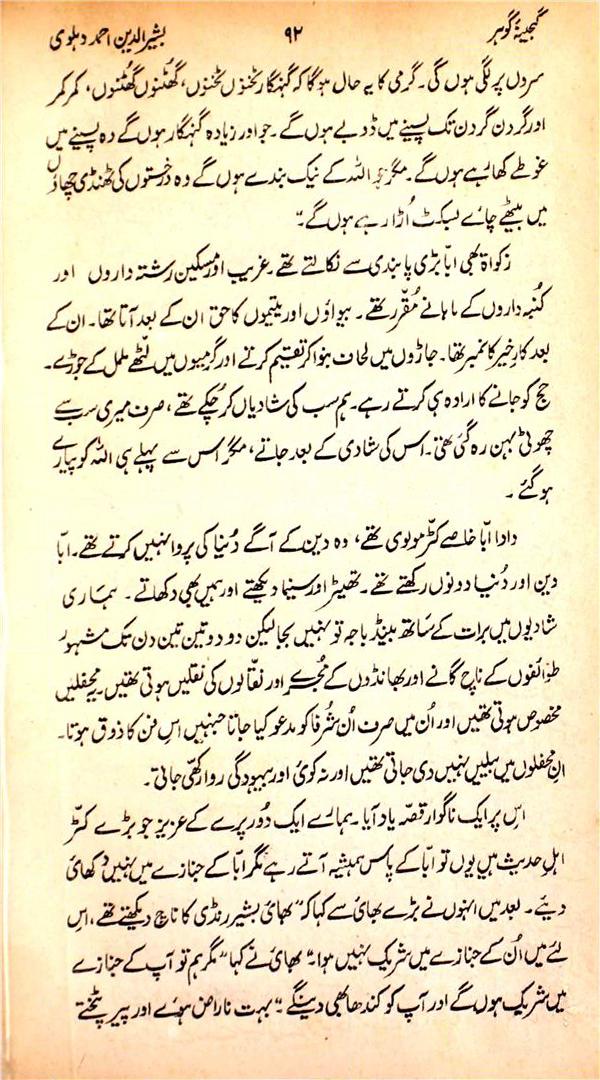 گنجینۂ گوہر ۹۲ بشیر الدین احمد دہلوی
سردں پر لگی ہوں گی۔ گرمی کا یہ حال ہوگا کہ گنہگار ٹخنوں ٹخنوں، گھٹنوں گھٹنوں، کمر کمر
اور گردن گردن تک پسینے میں ڈوبے ہوں گے۔ جو اور زیادہ گنہگار ہوں گے وہ پسینے میں
غوطے کھا رہے ہوں گے۔ مگر جو اللہ کے نیک بندے ہوں گے وہ درختوں کی ٹھنڈی چھاؤں
میں بیٹھے چائے بسکٹ اُڑا رہے ہوں گے۔"
زکواۃ بھی ابّا بڑی پابندی سے نکالتے تھے۔ غریب اور مسکین رشتہ داروں اور
کُنبہ داروں کے ماہانے مُقرّر تھے۔ بیواؤں اور یتیموں کا حق ان کے بعد آتا تھا۔ ان کے
بعد کارِ خیر کا نمبر تھا۔ جاڑوں میں لحاف بنوا کر تقسیم کرتے اور گرمیوں میں لٹھے ململ کے جوڑے۔
حج کو جانے کا ارادہ ہی کرتے رہے۔ ہم سب کی شادیاں کر چُکے تھے، صرف میری سب سے
چھوٹی بہن رہ گئی تھی۔ اس کی شادی کے بعد جاتے، مگر اس سے پہلے ہی اللہ کو پیارے
ہو گئے۔
دادا ابّا خاصے کٹّر مولوی تھے، وہ دین کے آگے دُنیا کی پروا نہیں کرتے تھے۔ ابّا
دین اور دُنیا دونوں رکھتے تھے۔ تھیٹر اور سنیما دیکھتے اور ہمیں بھی دکھاتے۔ ہماری
شادیوں میں برات کے ساتھ بینڈ باجہ تو نہیں بجا لیکن دو دو تین تین دن تک مشہور
طوائفوں کے ناچ گانے اور بھانڈوں کے مُجرے اور نقّالوں کی نقلیں ہوتی تھیں۔ یہ محفلیں
مخصوص ہوتی تھیں اور اُن میں صرف اُن شُرفا کو مدعو کیا جاتا جنہیں اس فن کا ذوق ہوتا۔
ان محفلوں میں بیلیں نہیں دی جاتی تھیں اور نہ کوئی اور بیہودگی روا رکھی جاتی۔
اس پر ایک ناگوار قصّہ یاد آیا۔ ہمارے ایک دُور پرے کے عزیز جو بڑے کٹّر
اہل حدیث ہیں یوں تو ابّا کے پاس ہمیشہ آتے رہے مگر ابّا کے جنازے میں نہیں دکھائی
دیئے۔ بعد میں انہوں نے بڑے بھائی سے کہا کہ "بھائی بشیر رنڈی کا ناچ دیکھتے تھے، اس
لئے میں اُن کے جنازے میں شریک نہیں ہوا۔" بھائی نے کہا "مگر ہم تو آپ کے جنازے
میں شریک ہوں گے اور آپ کو کندھا بھی دینگے۔" بہت ناراض ہوئے اور پیر پٹختے